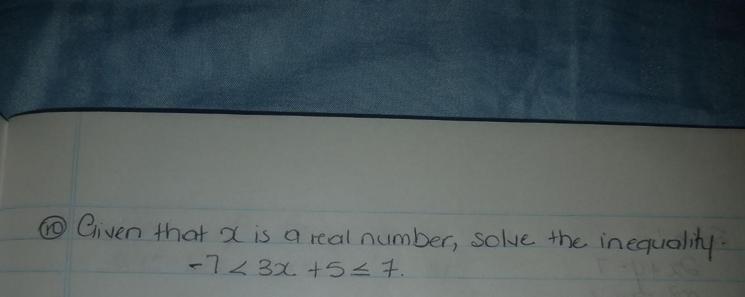 10 Given that x is a real number, solve the inequality.
-7 < 3x + 5 ≤ 7.